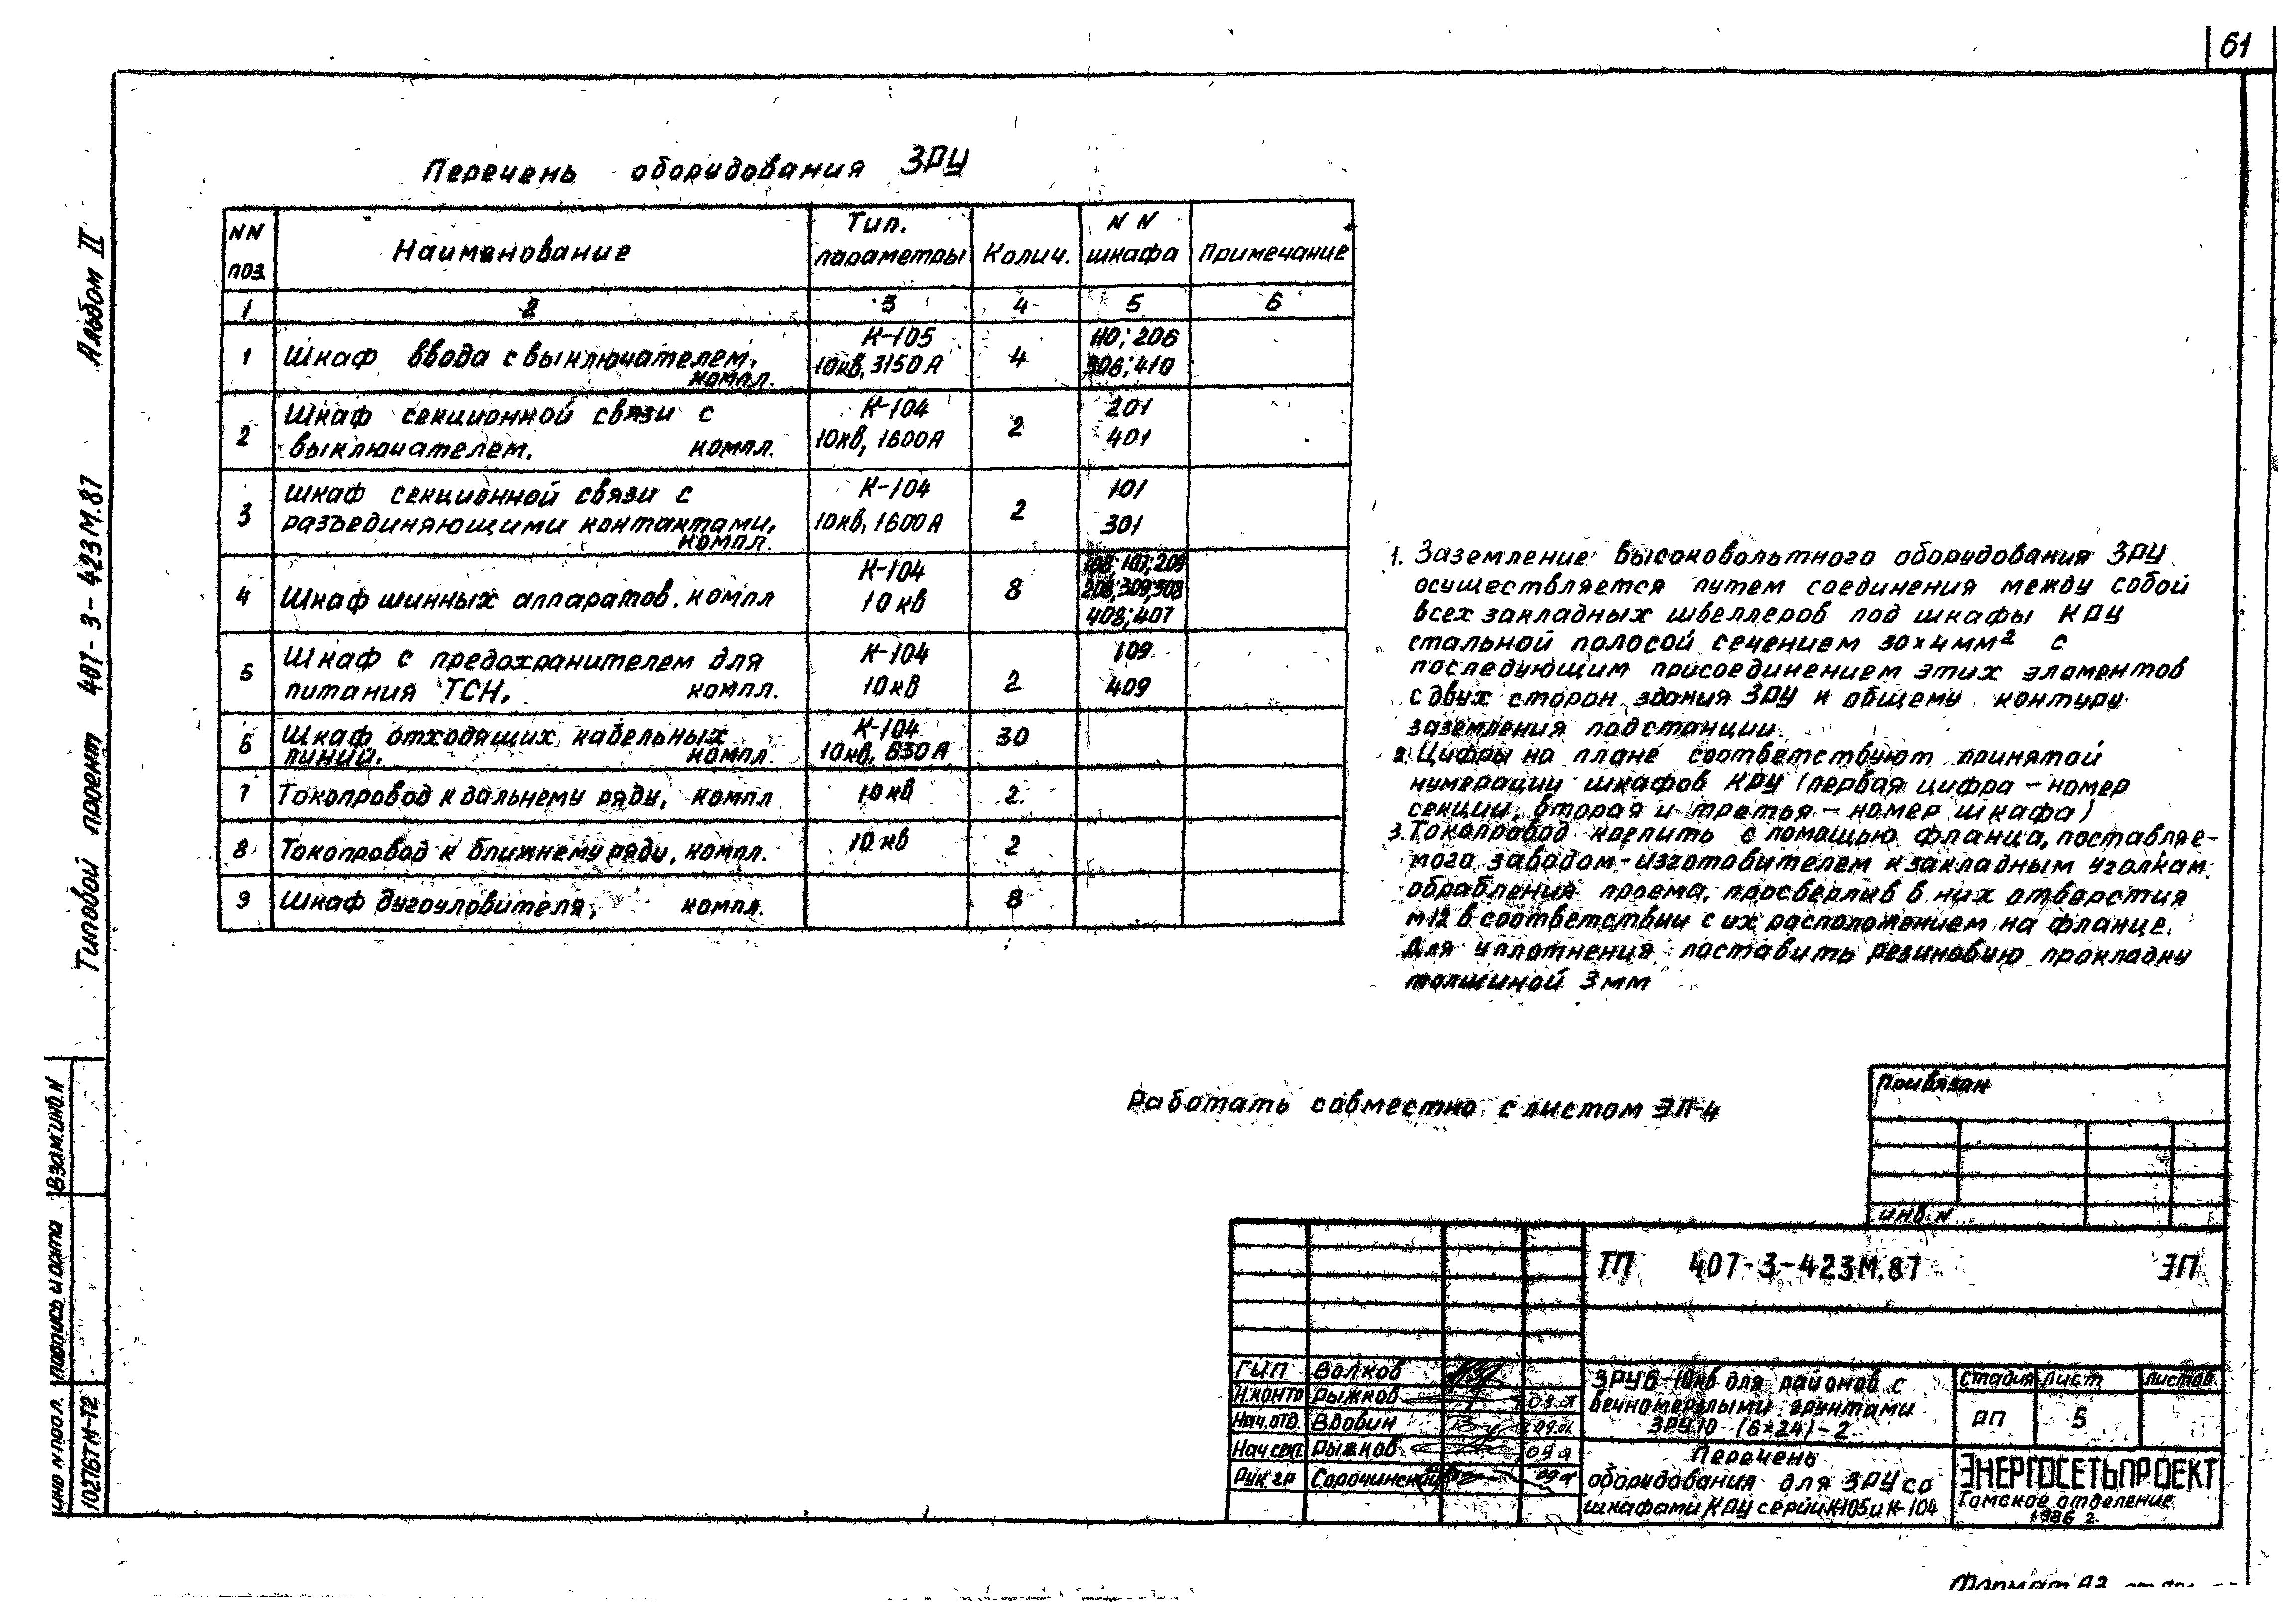 61
Перечень оборудования ЗРУ
NN поз.
Наименование
Тип. параметры
Колич.
NN шкафа
Примечание
1 2 3 4 5 6
1 Шкаф ввода с выключателем, компл. К-105 10кв, 3150А 4 110; 206 306; 410
2 Шкаф секционной связи с выключателем, компл. К-104 10кв, 1600А 2 201 401
3 Шкаф секционной связи с разъединяющими контактами, компл. К-104 10кв, 1600А 2 101 301
4 Шкаф шинных аппаратов, компл К-104 10кв 8 108; 107; 209 208; 309; 308 408; 407
5 Шкаф с предохранителем для питания ТСН, компл. К-104 10кв 2 109 409
6 Шкаф отходящих кабельных линий. компл. К-104 10кв, 630А 30
7 Токопровод к дальнему ряду, компл 10кв 2
8 Токопровод к ближнему ряду, компл. 10кв 2
9 Шкаф дугоуловителя, компл. 8
1. Заземление высоковольтного оборудования ЗРУ
осуществляется путем соединения между собой
всех закладных швеллеров под шкафы КРУ
стальной полосой сечением 30×4мм² с
последующим присоединением этих элементов
с двух сторон здания ЗРУ к общему контуру
заземления подстанции.
2. Цифры на плане соответствуют принятой
нумерации шкафов КРУ (первая цифра - номер
секции, вторая и третья - номер шкафа)
3. Токопровод крепить с помощью фланца, поставляе-
мого заводом-изготовителем к закладным уголкам
обрабления проема, просверлив в них отверстия
м12 в соответствии с их расположением на фланце.
Для уплотнения поставить резиновую прокладку
толщиной 3мм
Работать совместно с листом ЭП-4
Привязан
инв. N
ТП 407-3-423М.87 ЭП
ГИП Волков
Н.контр Рыжков
Нач.отд. Вдовин
Нач.сект. Рыжков
Рук. гр Сорочинский
ЗРУ 6-10кв для районов с
вечномерзлыми грунтами
ЗРУ10 (6×24)-2
Стадия Лист Листов
РП 5
Перечень
оборудования для ЗРУ со
шкафами КРУ серии К105 и К-104
ЭНЕРГОСЕТЬПРОЕКТ
Томское отделение
1986 г.
Формат А3
Типовой проект 407-3-423М.87 Альбом II
Взам.инв.N
Подпись и дата
инв N подл.
10276ТМ-Т2